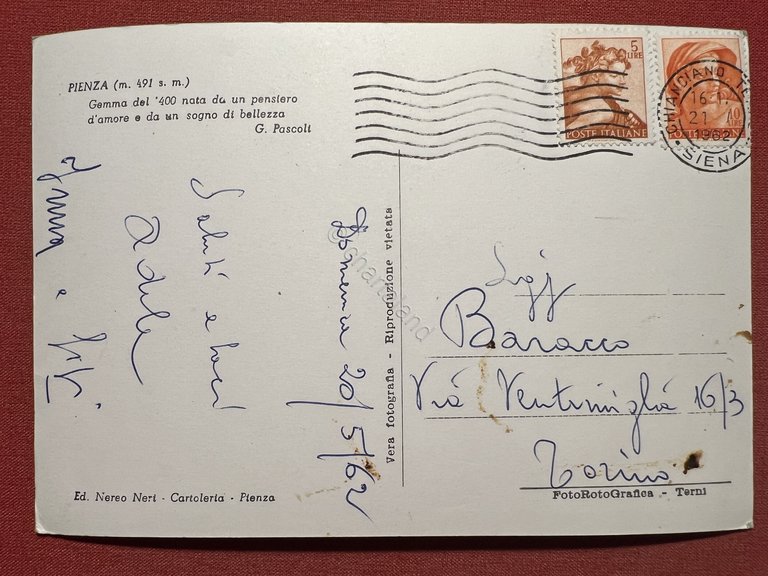 PIENZA (m. 491 s. m.)
Gemma del '400 nata da un pensiero
d'amore e da un sogno di bellezza
G. Pascoli
5
LIRE
POSTE ITALIANE
10
LIRE
POSTE ITALIANE
CHIANCIANO TE
16
21
1962
SIENA
Domenica 20/5/62
Saluti e baci
Adele
e
Vera fotografia - Riproduzione vietata
Sigg
Baracco
Via Ventimiglia 16/3
Torino
Ed. Nereo Neri - Cartoleria - Pienza
FotoRotoGrafica - Terni